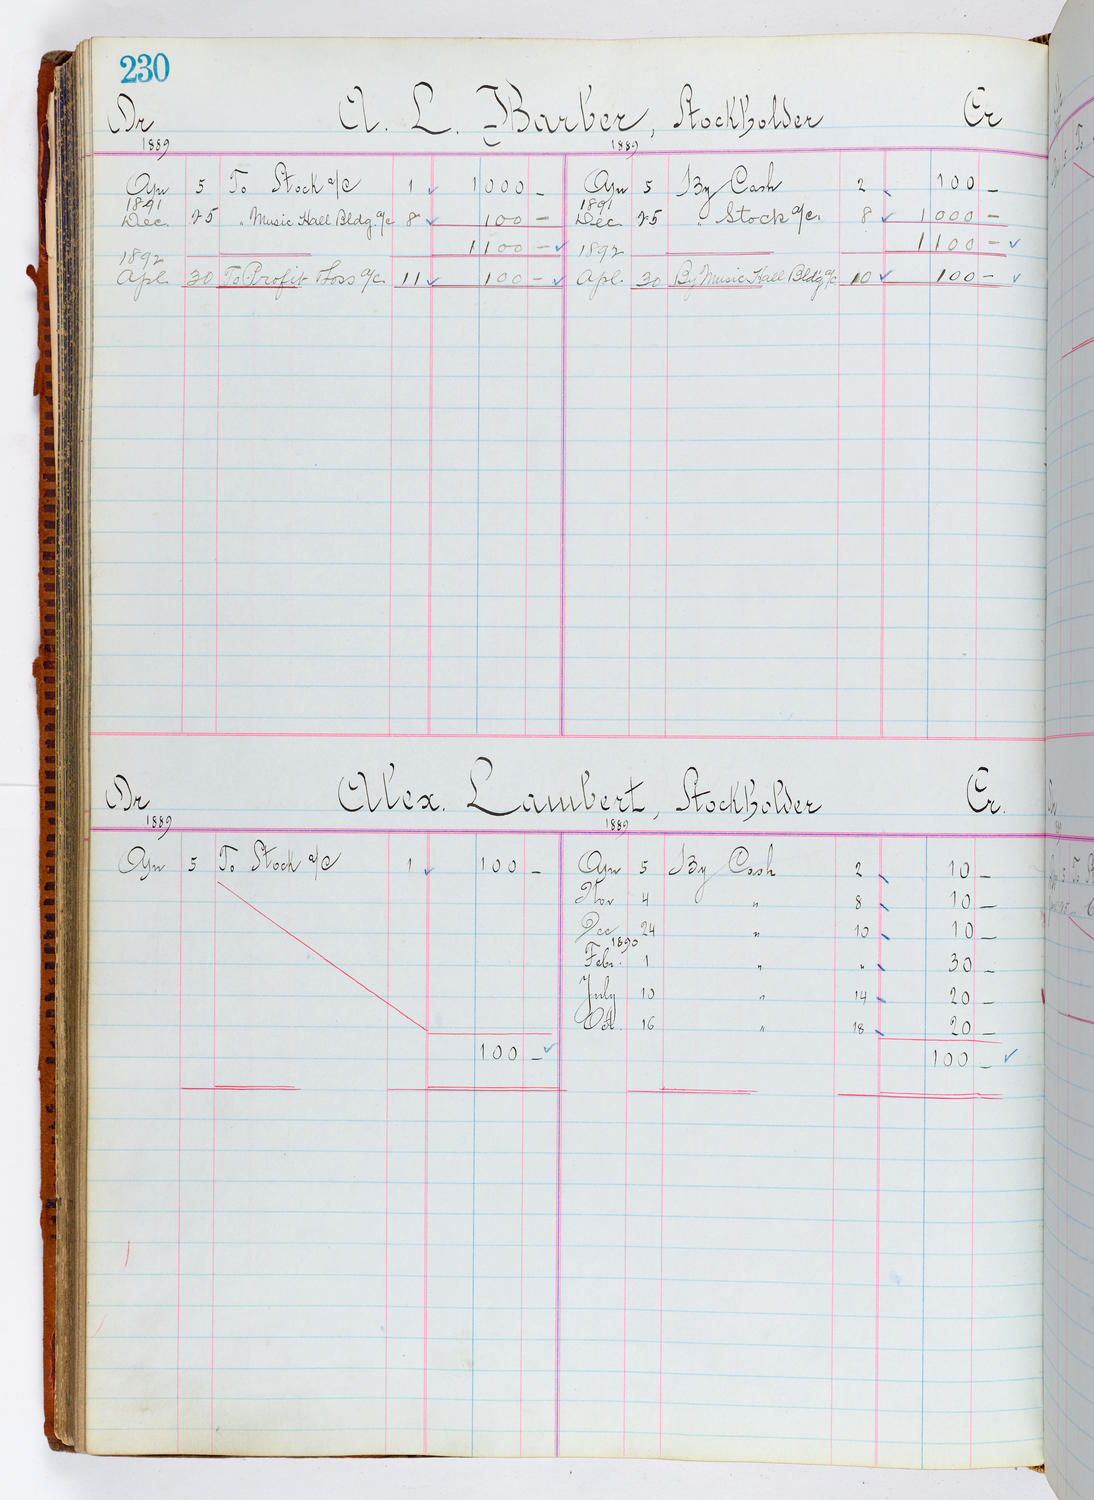 230
Dr A. L. Barber, Stockholder Cr
1889 1889
Apr 5 To Stock a/c 1 1000 – Apr 5 By Cash 2 100 –
1891 1891
Dec. 25 " Music Hall Bldg. a/c 8 100 – Dec. 25 " Stock a/c. 8 1000 –
1100 – 1100 –
1892 1892
Apl. 30 To Profit & Loss a/c. 11 100 – Apl. 30 By Music Hall Bldg a/c 10 100 –
Dr Alex. Lambert, Stockholder Cr.
1889 1889
Apr 5 To Stock a/c 1 100 – Apr 5 By Cash 2 10 –
Nov 4 " 8 10 –
Dec 24 " 10 10 –
1890
Febr. 1 " " 30 –
July 10 " 14 20 –
Oct. 16 " 18 20 –
100 – 100 –